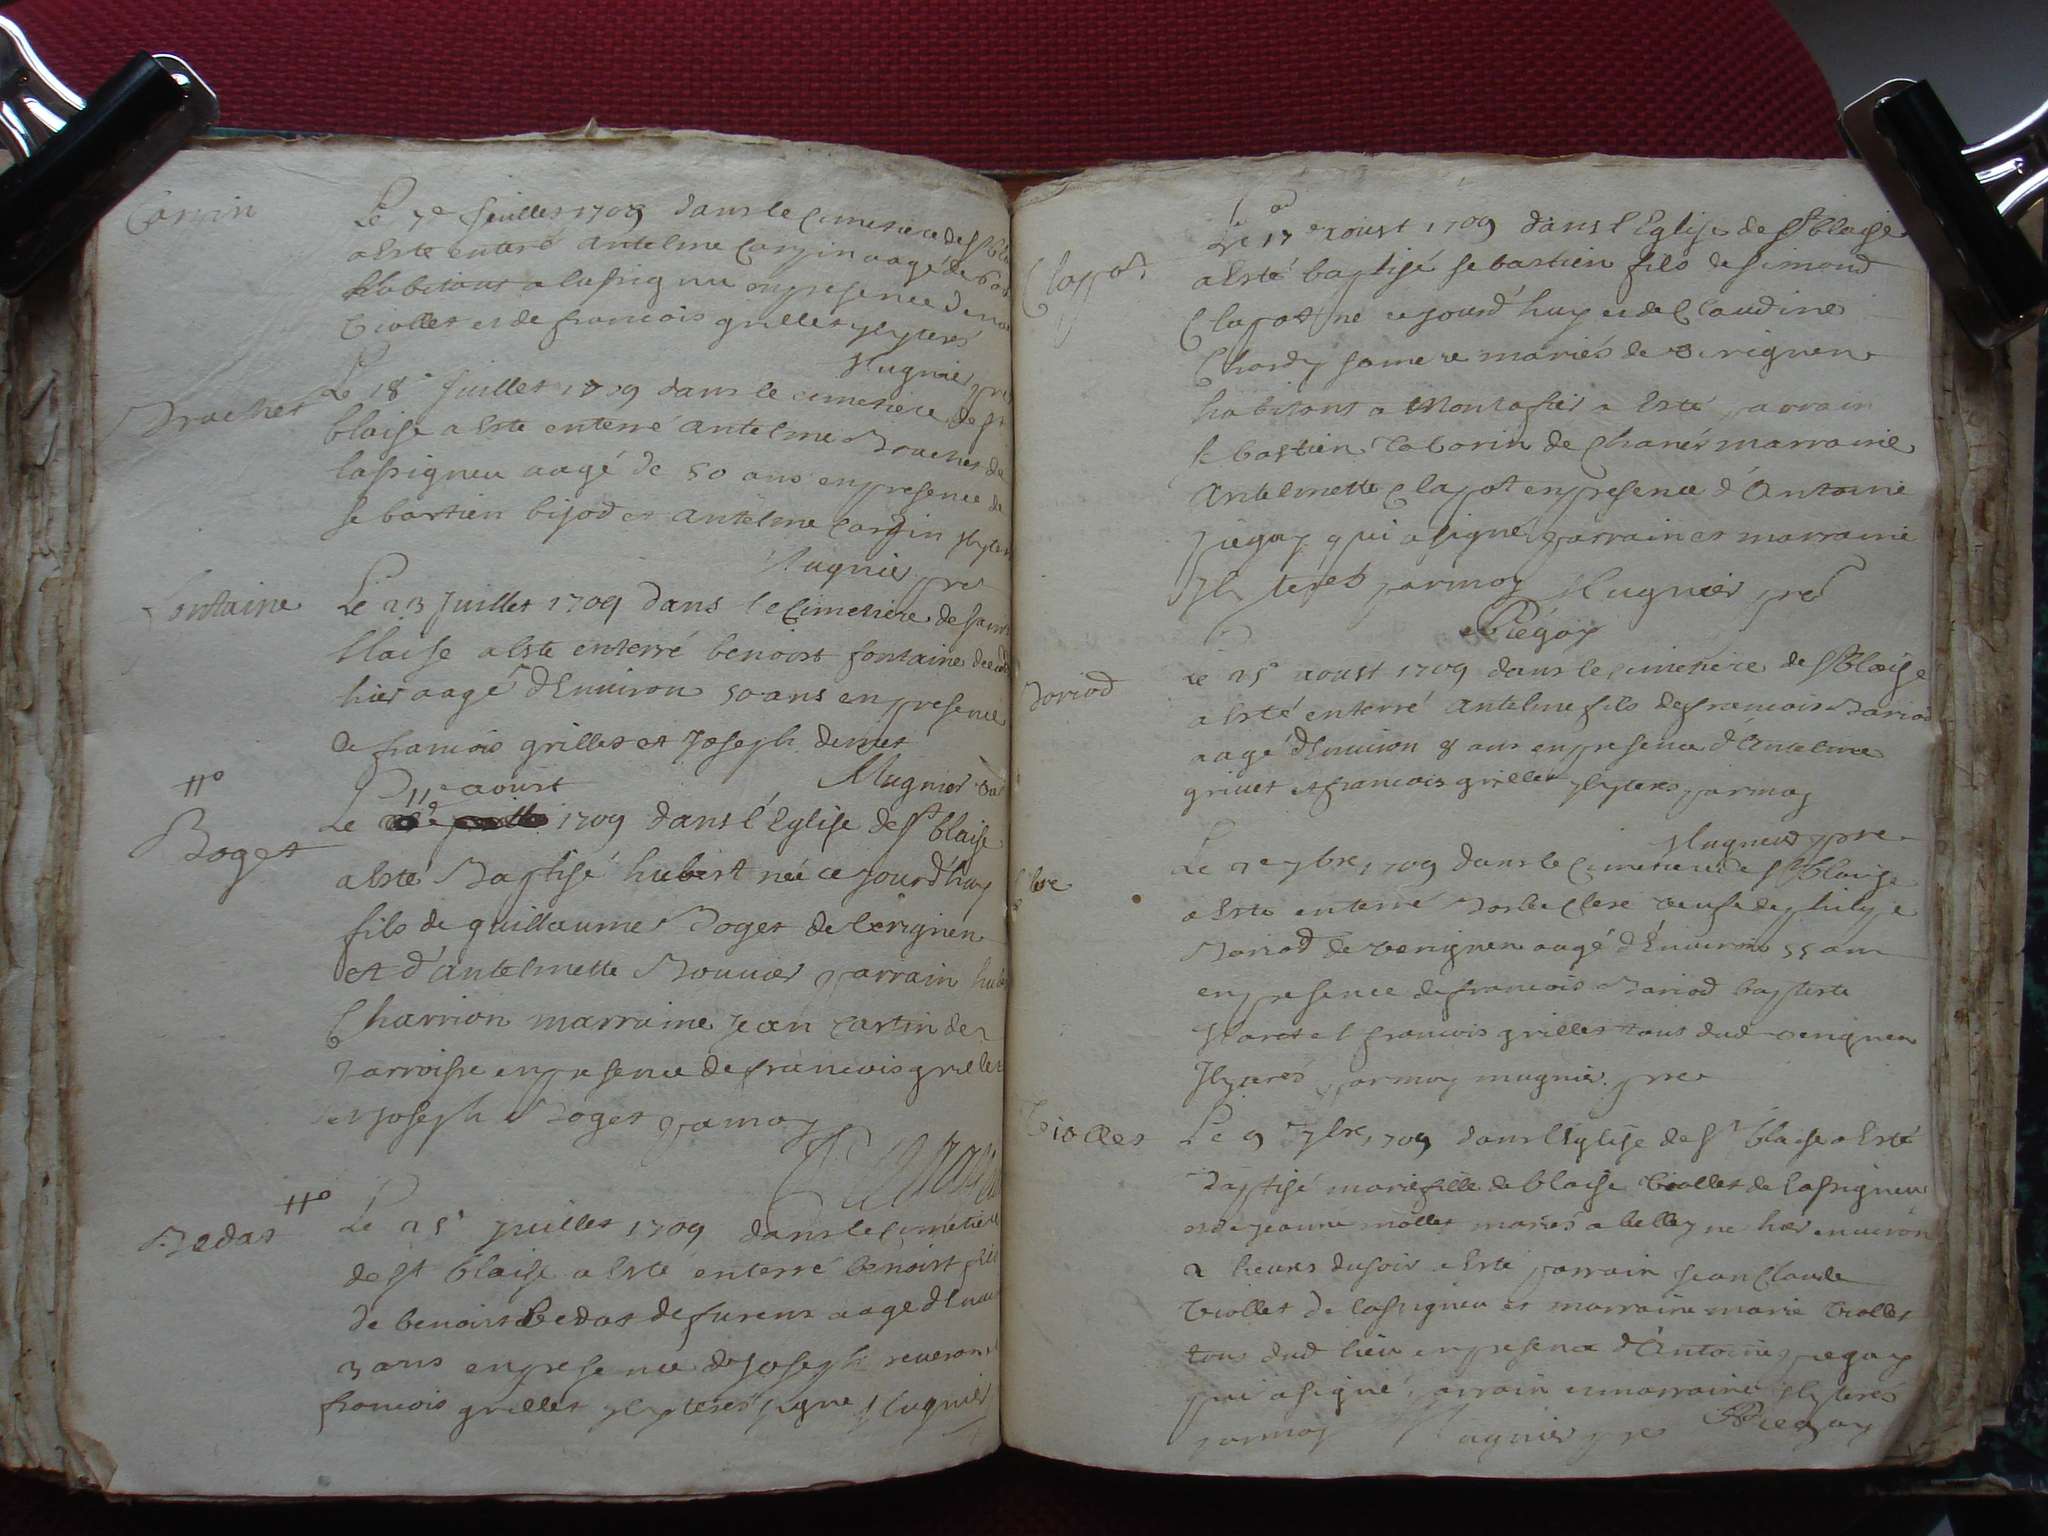 Carrin
Le 7e Juillet 1709 dans le Cimetiere de St bla
a Esté enterré antelme Carrin aagé de 60 a
habitant a lassignieu en presence de
Triollet et de francois grillet illiterés
Mugnier pre
Brachet
Le 18e Juillet 1709 dans le cimetiere de St
blaise a Esté enterré antelme Brachet de
lassigneu aagé de 50 ans en presence de
sebastien bijod et antelme Carrin illyte
Mugnier pre
fontaine
Le 23 Juillet 1709 dans le Cimetiere de saint
blaise a Esté enterré benoist fontaine decedé
hier aagé d'Environ 50 ans en presence
de francois grillet et Joseph demet
Mugnier
11e aoust
Boget
Le 1709 dans l'Eglise de St blaise
a Esté Baptisé hubert née ce jourd'huy
fils de guillaume Boget de
et d'antelmette Bouvier parrain hub
Charrion marraine jean de
parroisse en presence de francois grillet
et joseph Boget par moy
Bedat
Le 25e Juillet 1709 dans le Cimetiere
de St blaise a Esté enterré benoist fils
de benoist Bedat de furens aagé d'Envi
3 ans en presence de Joseph reverond
francois grillet illyterés signé Mugnier
Clappot
Le 17e aoust 1709 dans l'Eglise de St blaise
a Esté baptisé sebastien fils de simond
Clapot né ce jourd'huy et de Claudine
Chardy sa mere mariés de
habitant a a Esté parrain
sebastien taborin de Chanés marraine
antelmette Clapot en presence d'Antoine
piegay qui a signé parrain et marraine
illyterés par moy Mugnier pre
Piégay
Bariod
Le 25e aoust 1709 dans le cimetiere de St blaise
a Esté enterré antelme fils de francois Bariod
aagé d'Environ 8 ans en presence d'Antelme
grivet et francois grillet illyterés par moy
Mugnier pre
Clere
Le 2e 7bre 1709 dans le Cimetiere de St blaise
a Esté enterré Clere veufe de philipe
Bariod de verignen aagé d'Environ 55 ans
en presence de francois Bariod baptiste
et francois grillet tous dud verignen
Illyterés par moy mugnier pre
Triollet
Le 9e 7bre 1709 dans l'Eglise de St blaise a Esté
Baptisé marie fille de blaise triollet de lassigneu
et de jeanne mollet mariés a belley né hier environ
2 heures du soir a Esté parrain jean Claude
triollet de lassigneu et marraine marie triollet
tous dud lieu en presence d'Antoine piegay
qui a signé parrain et marraine illyterés
par moy Mugnier pre Piegay